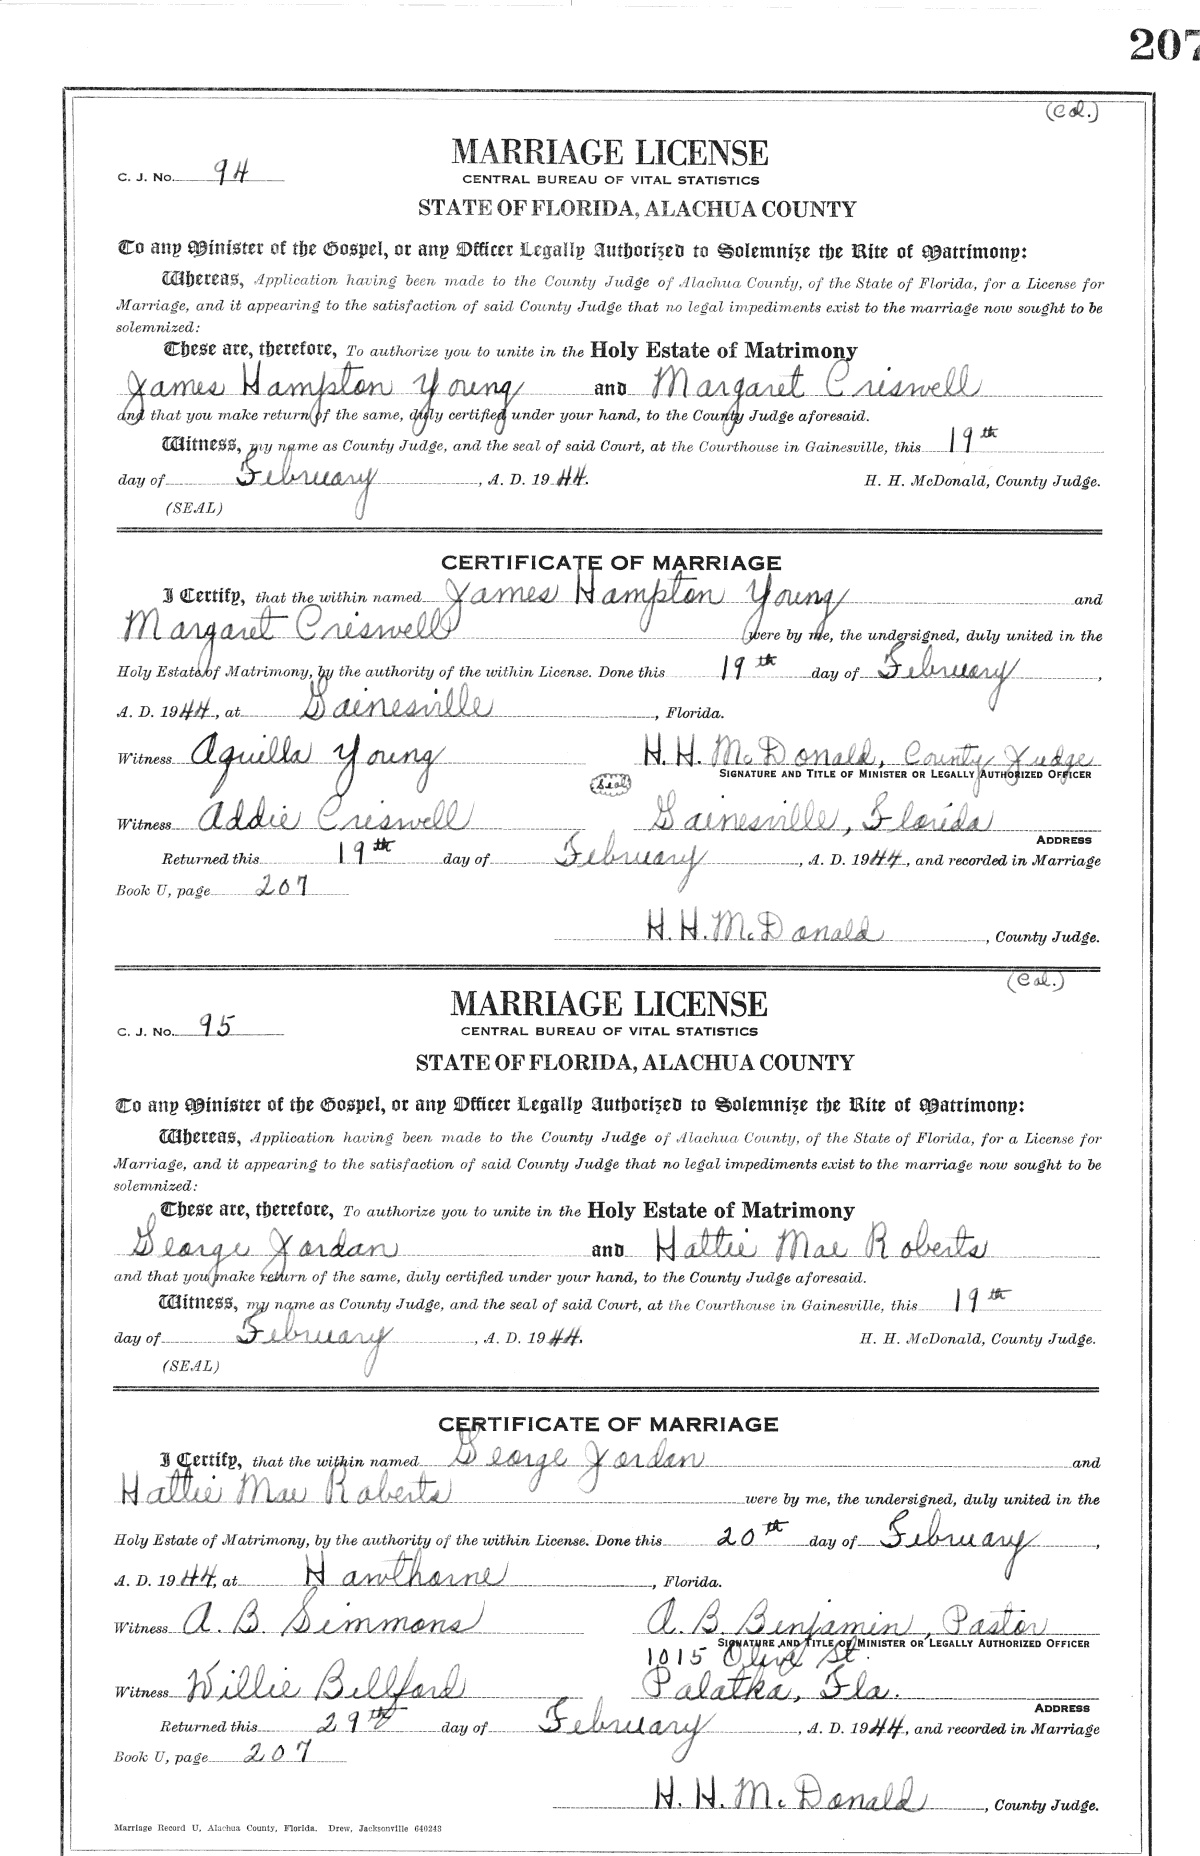 207
(Col.)
MARRIAGE LICENSE
C. J. No. 94
CENTRAL BUREAU OF VITAL STATISTICS
STATE OF FLORIDA, ALACHUA COUNTY
To any Minister of the Gospel, or any Officer Legally Authorized to Solemnize the Rite of Matrimony:
Whereas, Application having been made to the County Judge of Alachua County, of the State of Florida, for a License for
Marriage, and it appearing to the satisfaction of said County Judge that no legal impediments exist to the marriage now sought to be
solemnized:
These are, therefore, To authorize you to unite in the Holy Estate of Matrimony
James Hampton Young and Margaret Criswell
and that you make return of the same, duly certified under your hand, to the County Judge aforesaid.
Witness, my name as County Judge, and the seal of said Court, at the Courthouse in Gainesville, this 19th
day of February, A. D. 1944. H. H. McDonald, County Judge.
(SEAL)
CERTIFICATE OF MARRIAGE
I Certify, that the within named James Hampton Young and
Margaret Criswell were by me, the undersigned, duly united in the
Holy Estate of Matrimony, by the authority of the within License. Done this 19th day of February,
A. D. 1944, at Gainesville, Florida.
Witness Aquilla Young H. H. McDonald, County Judge
SIGNATURE AND TITLE OF MINISTER OR LEGALLY AUTHORIZED OFFICER
(Seal)
Witness Addie Criswell Gainesville, Florida
ADDRESS
Returned this 19th day of February, A. D. 1944, and recorded in Marriage
Book U, page 207
H. H. McDonald, County Judge.
(Col.)
MARRIAGE LICENSE
C. J. No. 95
CENTRAL BUREAU OF VITAL STATISTICS
STATE OF FLORIDA, ALACHUA COUNTY
To any Minister of the Gospel, or any Officer Legally Authorized to Solemnize the Rite of Matrimony:
Whereas, Application having been made to the County Judge of Alachua County, of the State of Florida, for a License for
Marriage, and it appearing to the satisfaction of said County Judge that no legal impediments exist to the marriage now sought to be
solemnized:
These are, therefore, To authorize you to unite in the Holy Estate of Matrimony
George Jordan and Hattie Mae Roberts
and that you make return of the same, duly certified under your hand, to the County Judge aforesaid.
Witness, my name as County Judge, and the seal of said Court, at the Courthouse in Gainesville, this 19th
day of February, A. D. 1944. H. H. McDonald, County Judge.
(SEAL)
CERTIFICATE OF MARRIAGE
I Certify, that the within named George Jordan and
Hattie Mae Roberts were by me, the undersigned, duly united in the
Holy Estate of Matrimony, by the authority of the within License. Done this 20th day of February,
A. D. 1944, at Hawthorne, Florida.
Witness A. B. Simmons A. B. Benjamin, Pastor
SIGNATURE AND TITLE OF MINISTER OR LEGALLY AUTHORIZED OFFICER
1015 Olive St.
Witness Willie Bellford Palatka, Fla.
ADDRESS
Returned this 29th day of February, A. D. 1944, and recorded in Marriage
Book U, page 207
H. H. McDonald, County Judge.
Marriage Record U, Alachua County, Florida. Drew, Jacksonville 640243